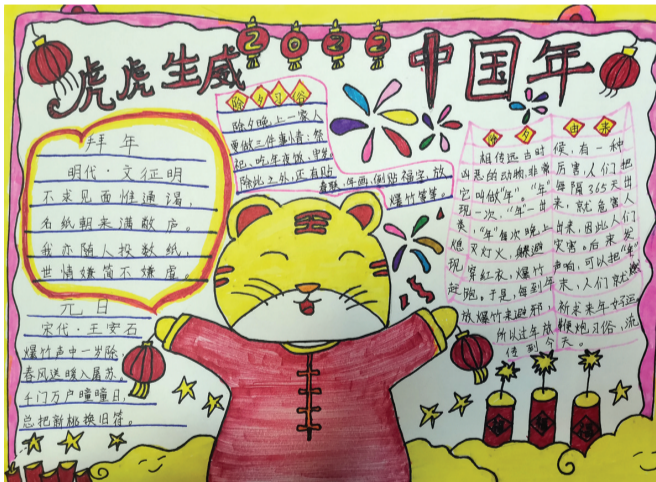 虎虎生威
2022
中国年
拜年
明代·文征明
不求见面惟通谒,
名纸朝来满敝庐。
我亦随人投数纸,
世情嫌简不嫌虚。
元日
宋代·王安石
爆竹声中一岁除,
春风送暖入屠苏。
千门万户曈曈日,
总把新桃换旧符。
除夕习俗
除夕晚上一家人
要做三件事情:祭
祀、吃年夜饭、守岁。
除此之外,还有贴
春联、年画、倒贴福字、放
爆竹等等。
除夕由来
祖传远古时候,有一种
凶恶的动物非常厉害,人们把
它叫做“年”。“年”每隔365天出
现一次,“年”一出来,就危害人
类,“年”每次晚上出来,因此人们
熄灭灯火,躲避灾害。后来发
现穿红衣,爆竹声响,可以把“年”
赶跑。于是,每到年末,人们就燃
放爆竹来避邪,祈求来年好运,
所以过年放鞭炮习俗,流
传到今天。
王
福
福
福